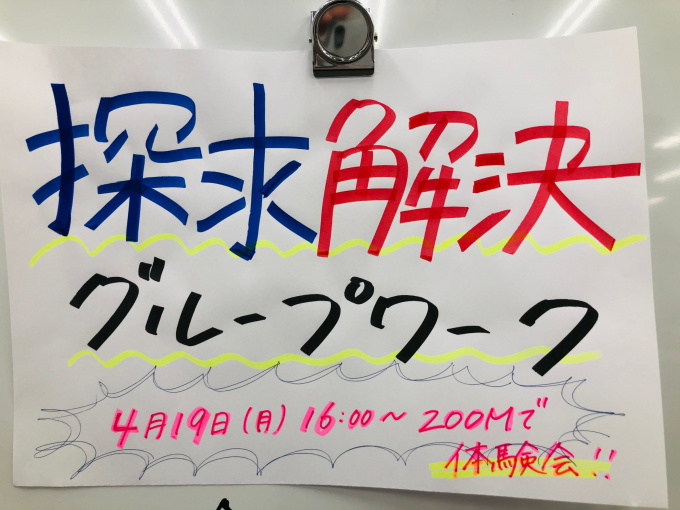 探求解決
グループワーク
4月19日(月) 16:00〜 ZOOMで
体験会!!